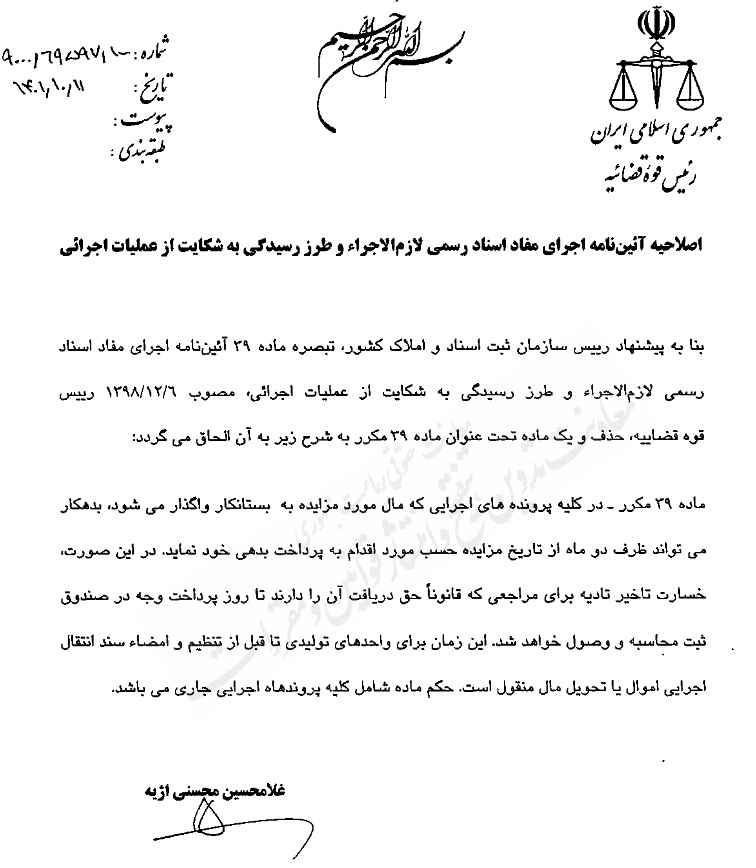 بسم الله الرحمن الرحیم
جمهوری اسلامی ایران
رئیس قوهٔ قضائیه
شماره: ۹۰۰۰/۶۹۷۵۹۷/۱۰۰
تاریخ: ۱۴۰۱/۱۰/۱۱
پیوست:
طبقه‌بندی:
اصلاحیه آئین‌نامه اجرای مفاد اسناد رسمی لازم‌الاجراء و طرز رسیدگی به شکایت از عملیات اجرائی
بنا به پیشنهاد رییس سازمان ثبت اسناد و املاک کشور، تبصره ماده ۳۹ آئین‌نامه اجرای مفاد اسناد
رسمی لازم‌الاجراء و طرز رسیدگی به شکایت از عملیات اجرائی، مصوب ۱۳۹۸/۱۲/۶ رییس
قوه قضاییه، حذف و یک ماده تحت عنوان ماده ۳۹ مکرر به شرح زیر به آن الحاق می گردد:
ماده ۳۹ مکرر ـ در کلیه پرونده های اجرایی که مال مورد مزایده به بستانکار واگذار می شود، بدهکار
می تواند ظرف دو ماه از تاریخ مزایده حسب مورد اقدام به پرداخت بدهی خود نماید. در این صورت،
خسارت تاخیر تادیه برای مراجعی که قانوناً حق دریافت آن را دارند تا روز پرداخت وجه در صندوق
ثبت محاسبه و وصول خواهد شد. این زمان برای واحدهای تولیدی تا قبل از تنظیم و امضاء سند انتقال
اجرایی اموال یا تحویل مال منقول است. حکم ماده شامل کلیه پروندهاه اجرایی جاری می باشد.
غلامحسین محسنی اژیه
معاونت حقوقی ریاست جمهوری
معاونت تدوین، تنقیح و انتشار قوانین و مقررات